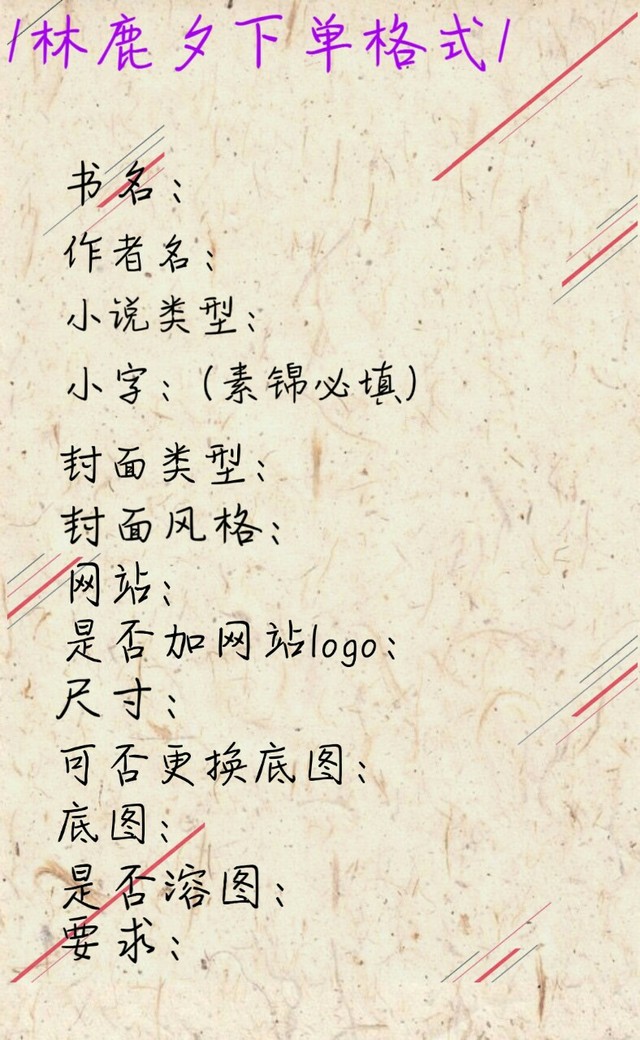 /林鹿夕下单格式/
书名：
作者名：
小说类型：
小字：（素锦必填）
封面类型：
封面风格：
网站：
是否加网站logo：
尺寸：
可否更换底图：
底图：
是否溶图：
要求：